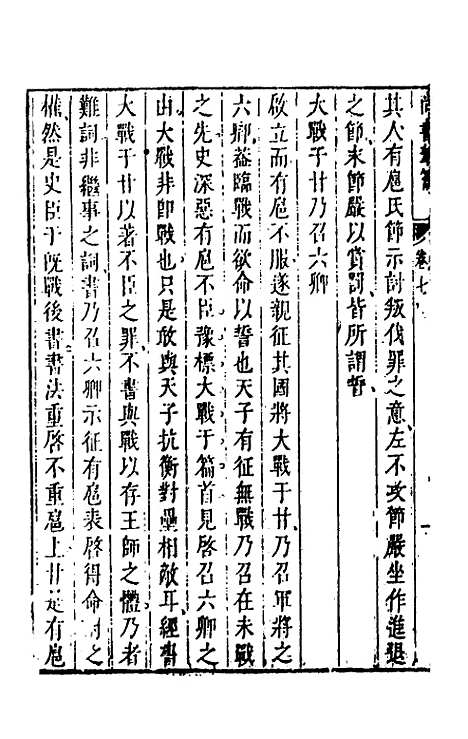 尚書 卷七
其人有扈氏節示討叛伐罪之意左不攻節嚴坐作進退
之節末節嚴以賞罰皆所謂誓
大戰于甘乃召六卿
啟立而有扈不服遂親征其國將大戰于甘乃召軍將之
六卿葢臨戰而欲命以誓也天子有征無戰乃召在未戰
之先史深惡有扈不臣豫標大戰于篇首見啓召六卿之
由大戰非卽戰也只是敢與天子抗衡對壘相敵耳經書
大戰于甘以著不臣之罪不書與戰以存王師之體乃者
難詞非繼事之詞書乃召六卿示征有扈表啓得命討之
權然是史臣于旣戰後書書法重啓不重扈上甘是有扈